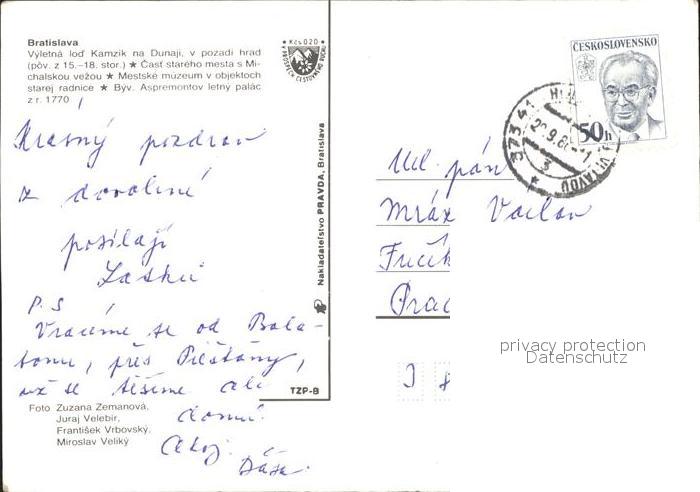 Bratislava
Výletná loď Kamzík na Dunaji, v pozadí hrad
(pôv. z 15.–18. stor.) ★ Časť starého mesta s Mi-
chalskou vežou ★ Mestské múzeum v objektoch
starej radnice ★ Býv. Aspremontov letný palác
z r. 1770
Kčs 0,20
V PROSPECH CESTOVNÉHO RUCHU
Krásný pozdrav
z dovolené
posílají
P.S
Vracíme se od Bala-
tonu, přes Piešťany,
už se těšíme
domů.
Ahoj.
Dáša.
Foto Zuzana Zemanová,
Juraj Velebír,
František Vrbovský,
Miroslav Veliký
Nakladateľstvo PRAVDA, Bratislava
TZP-B
ČESKOSLOVENSKO
50h
373 41
VLTAVOU
3
Ul. pán
Mráz Václav
privacy protection
Datenschutz